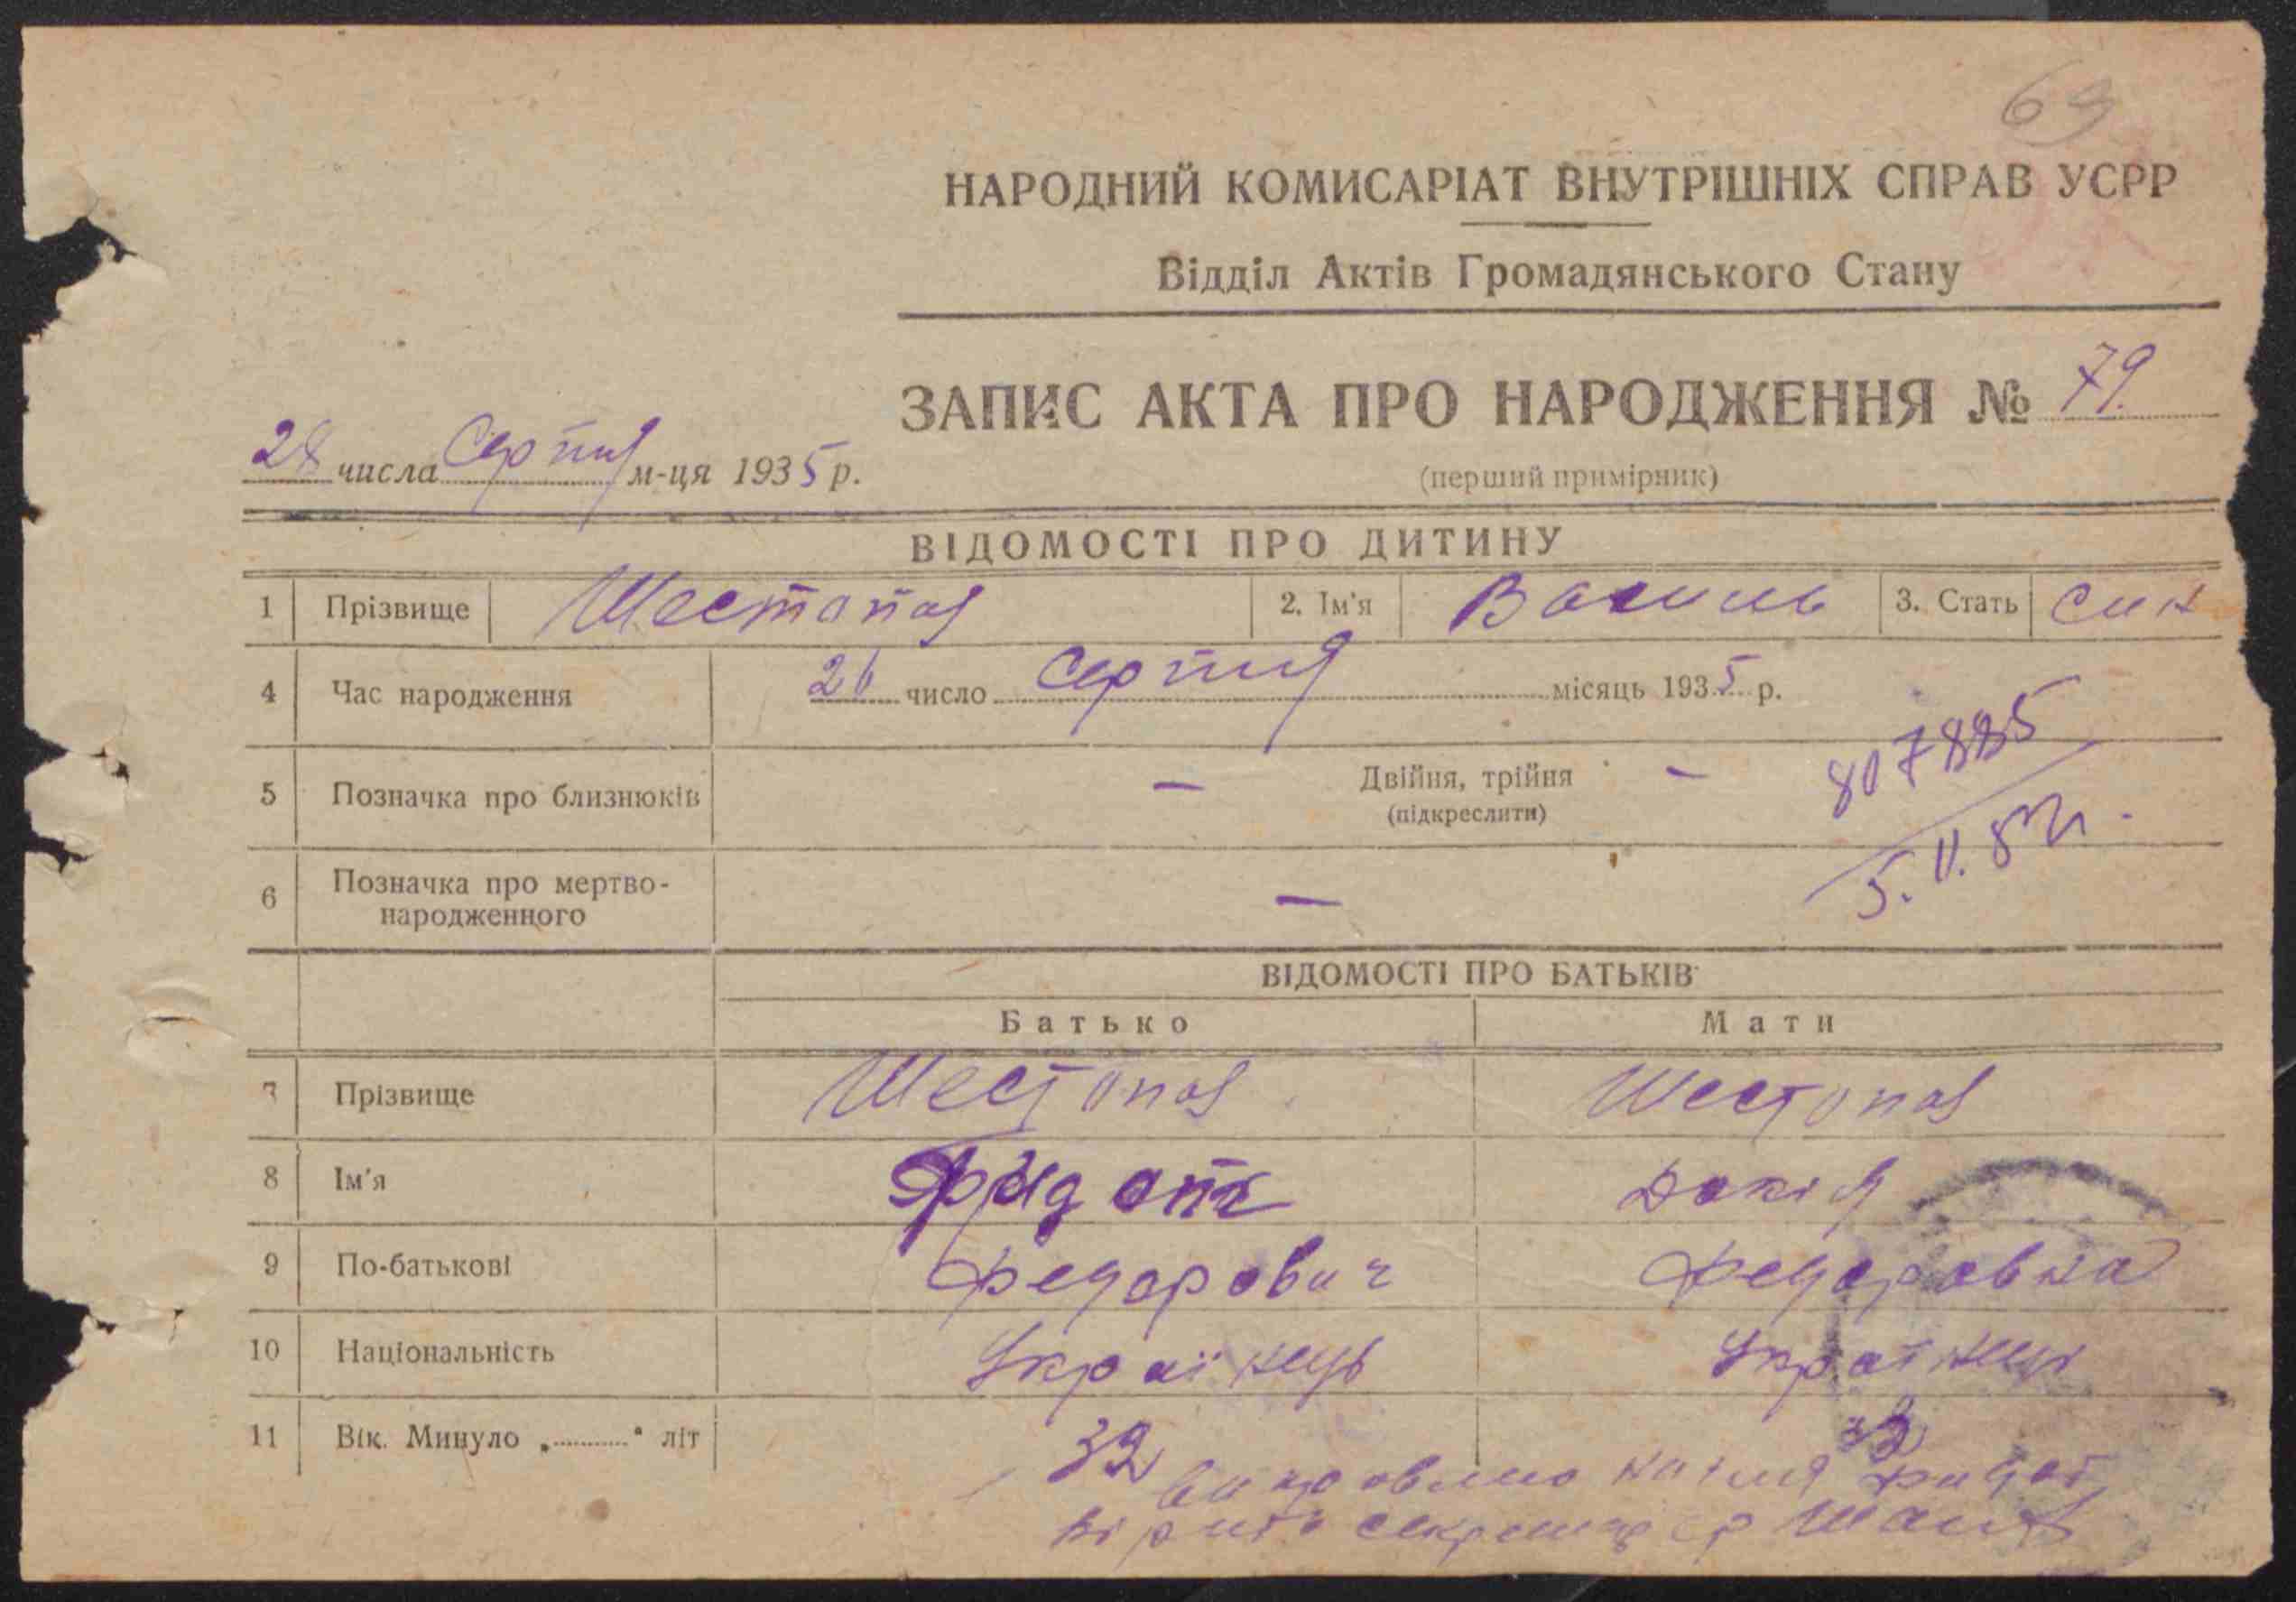 69
НАРОДНИЙ КОМИСАРІАТ ВНУТРІШНІХ СПРАВ УСРР
Відділ Актів Громадянського Стану
ЗАПИС АКТА ПРО НАРОДЖЕННЯ № 79.
28 числа Серпня м-ця 1935 р.
(перший примірник)
ВІДОМОСТІ ПРО ДИТИНУ
1 Прізвище Шестопал 2. Ім'я Василь 3. Стать Син
4 Час народження 26 число Серпня місяць 1935 р.
5 Позначка про близнюків — Двійня, трійня —
(підкреслити)
807885
5.II.52г.
6 Позначка про мертво-
народженного —
ВІДОМОСТІ ПРО БАТЬКІВ
Батько Мати
7 Прізвище Шестопал Шестопал
8 Ім'я Докія
9 По-батькові Федорович Федоровна
10 Національність Українець Українець
11 Вік. Минуло „ “ літ 32 32
виправлено на ім'я
вірно секретар